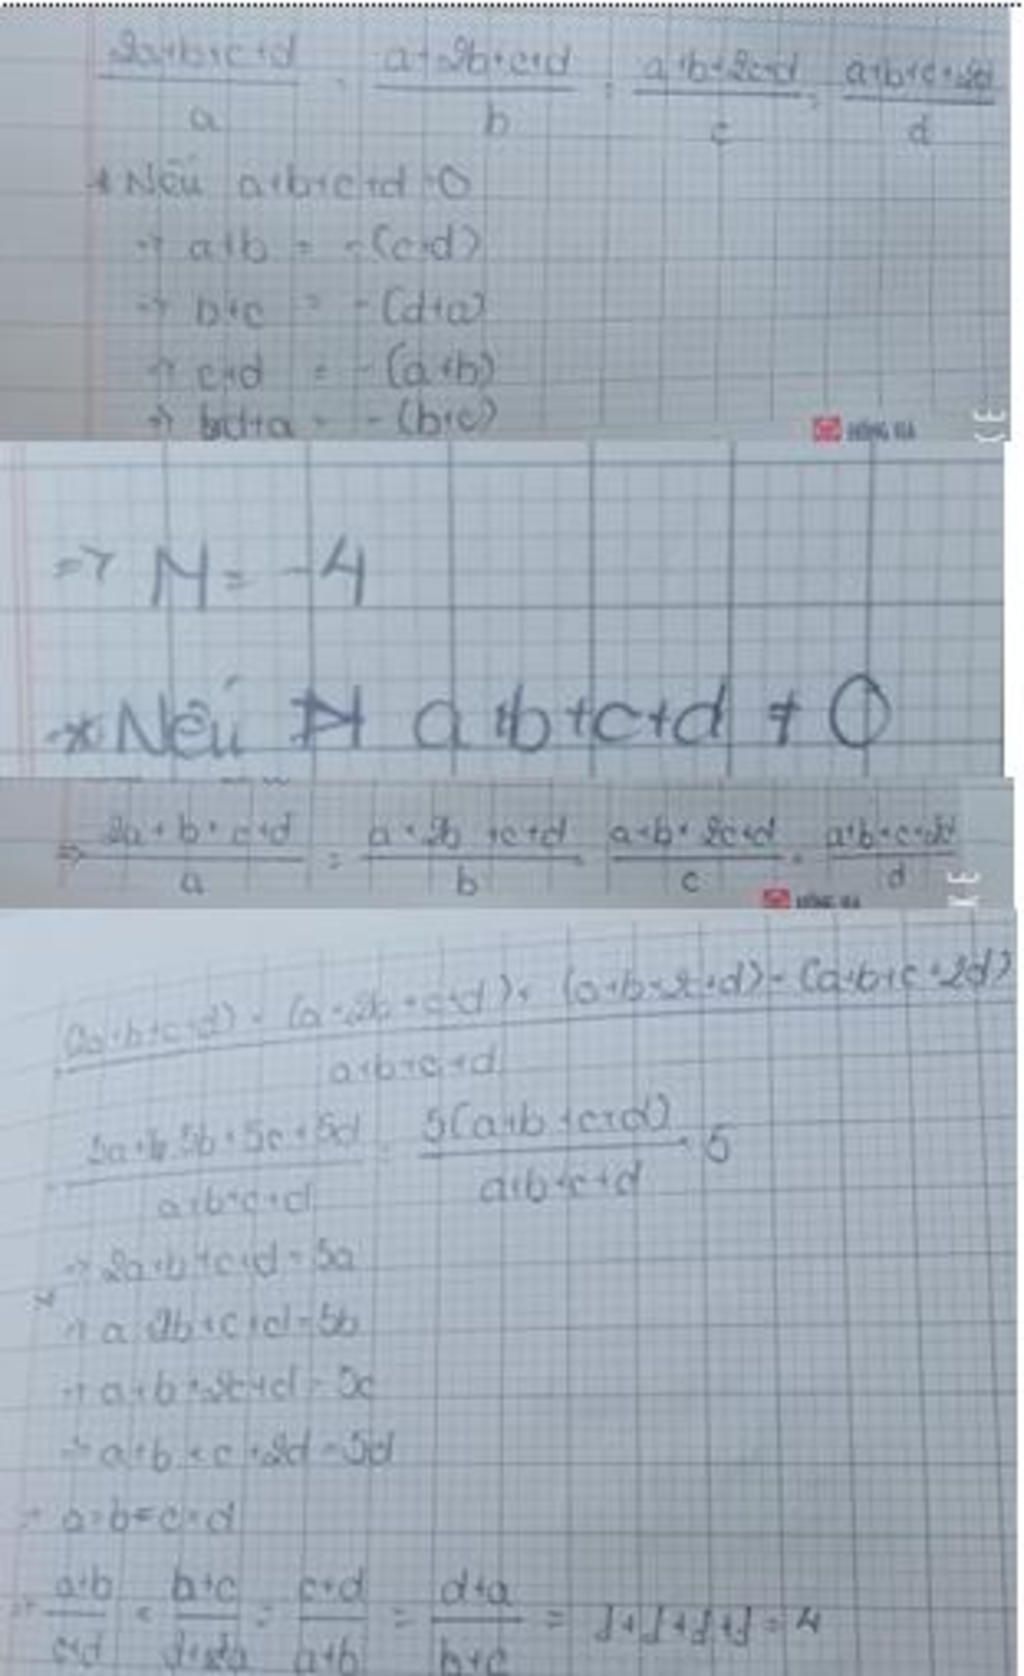 2a+b+c+d/a = a+2b+c+d/b = a+b+2c+d/c = a+b+c+2d/d
* Nếu a+b+c+d=0
→ a+b = -(c+d)
→ b+c = -(d+a)
→ c+d = -(a+b)
→ d+a = -(b+c)
HỒNG HÀ
⇒ M = -4
* Nếu a+b+c+d ≠ 0
⇒ 2a+b+c+d/a = a+2b+c+d/b = a+b+2c+d/c = a+b+c+2d/d
HỒNG HÀ
(2a+b+c+d)+(a+2b+c+d)+(a+b+2c+d)+(a+b+c+2d)/a+b+c+d
= 5a+5b+5c+5d/a+b+c+d = 5(a+b+c+d)/a+b+c+d = 5
→ 2a+b+c+d=5a
→ a+2b+c+d=5b
→ a+b+2c+d=5c
→ a+b+c+2d=5d
→ a=b=c=d
→ a+b/c+d = b+c/d+a = c+d/a+b = d+a/b+c = 1+1+1+1=4